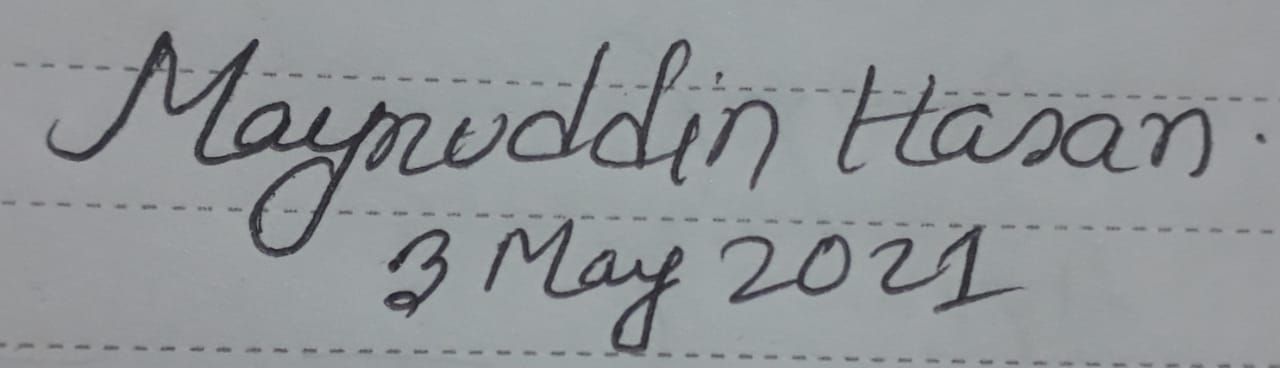 Maynuddin Hasan.
3 May 2021